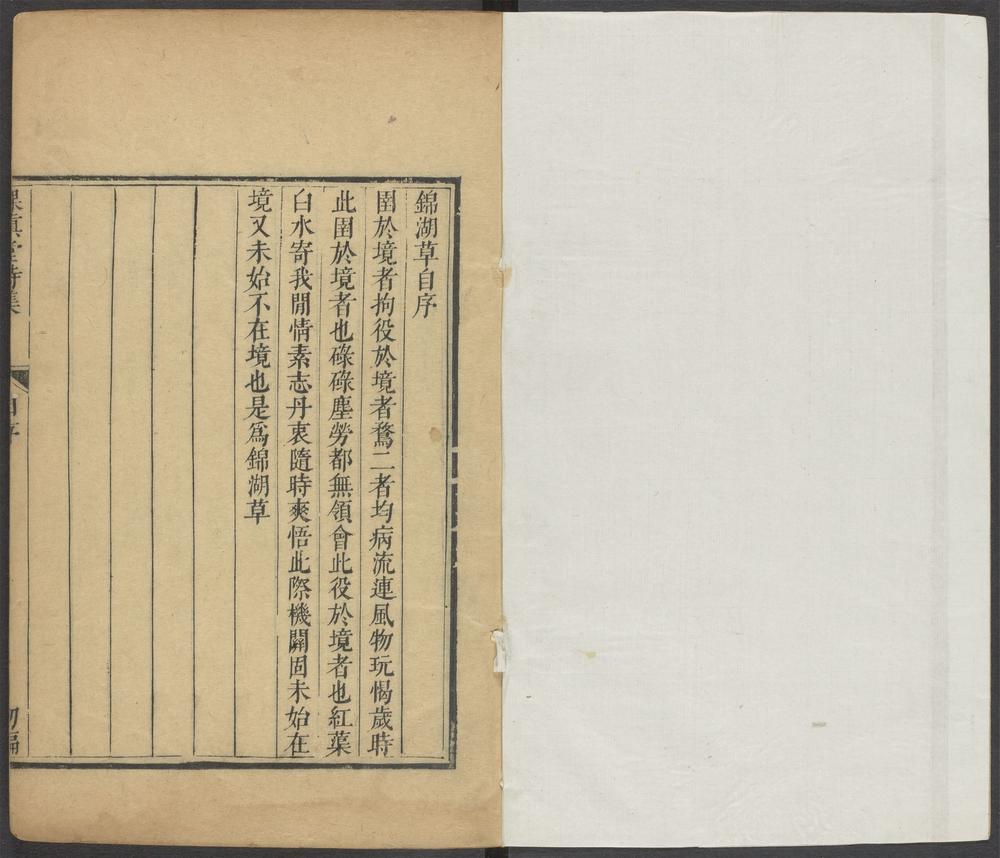 錦湖草自序
囿於境者拘役於境者騖二者均病流連風物玩愒歲時
此囿於境者也碌碌塵勞都無領會此役於境者也紅葉
白水寄我閒情素志丹衷隨時爽悟此際機關固未始在
境又未始不在境也是爲錦湖草